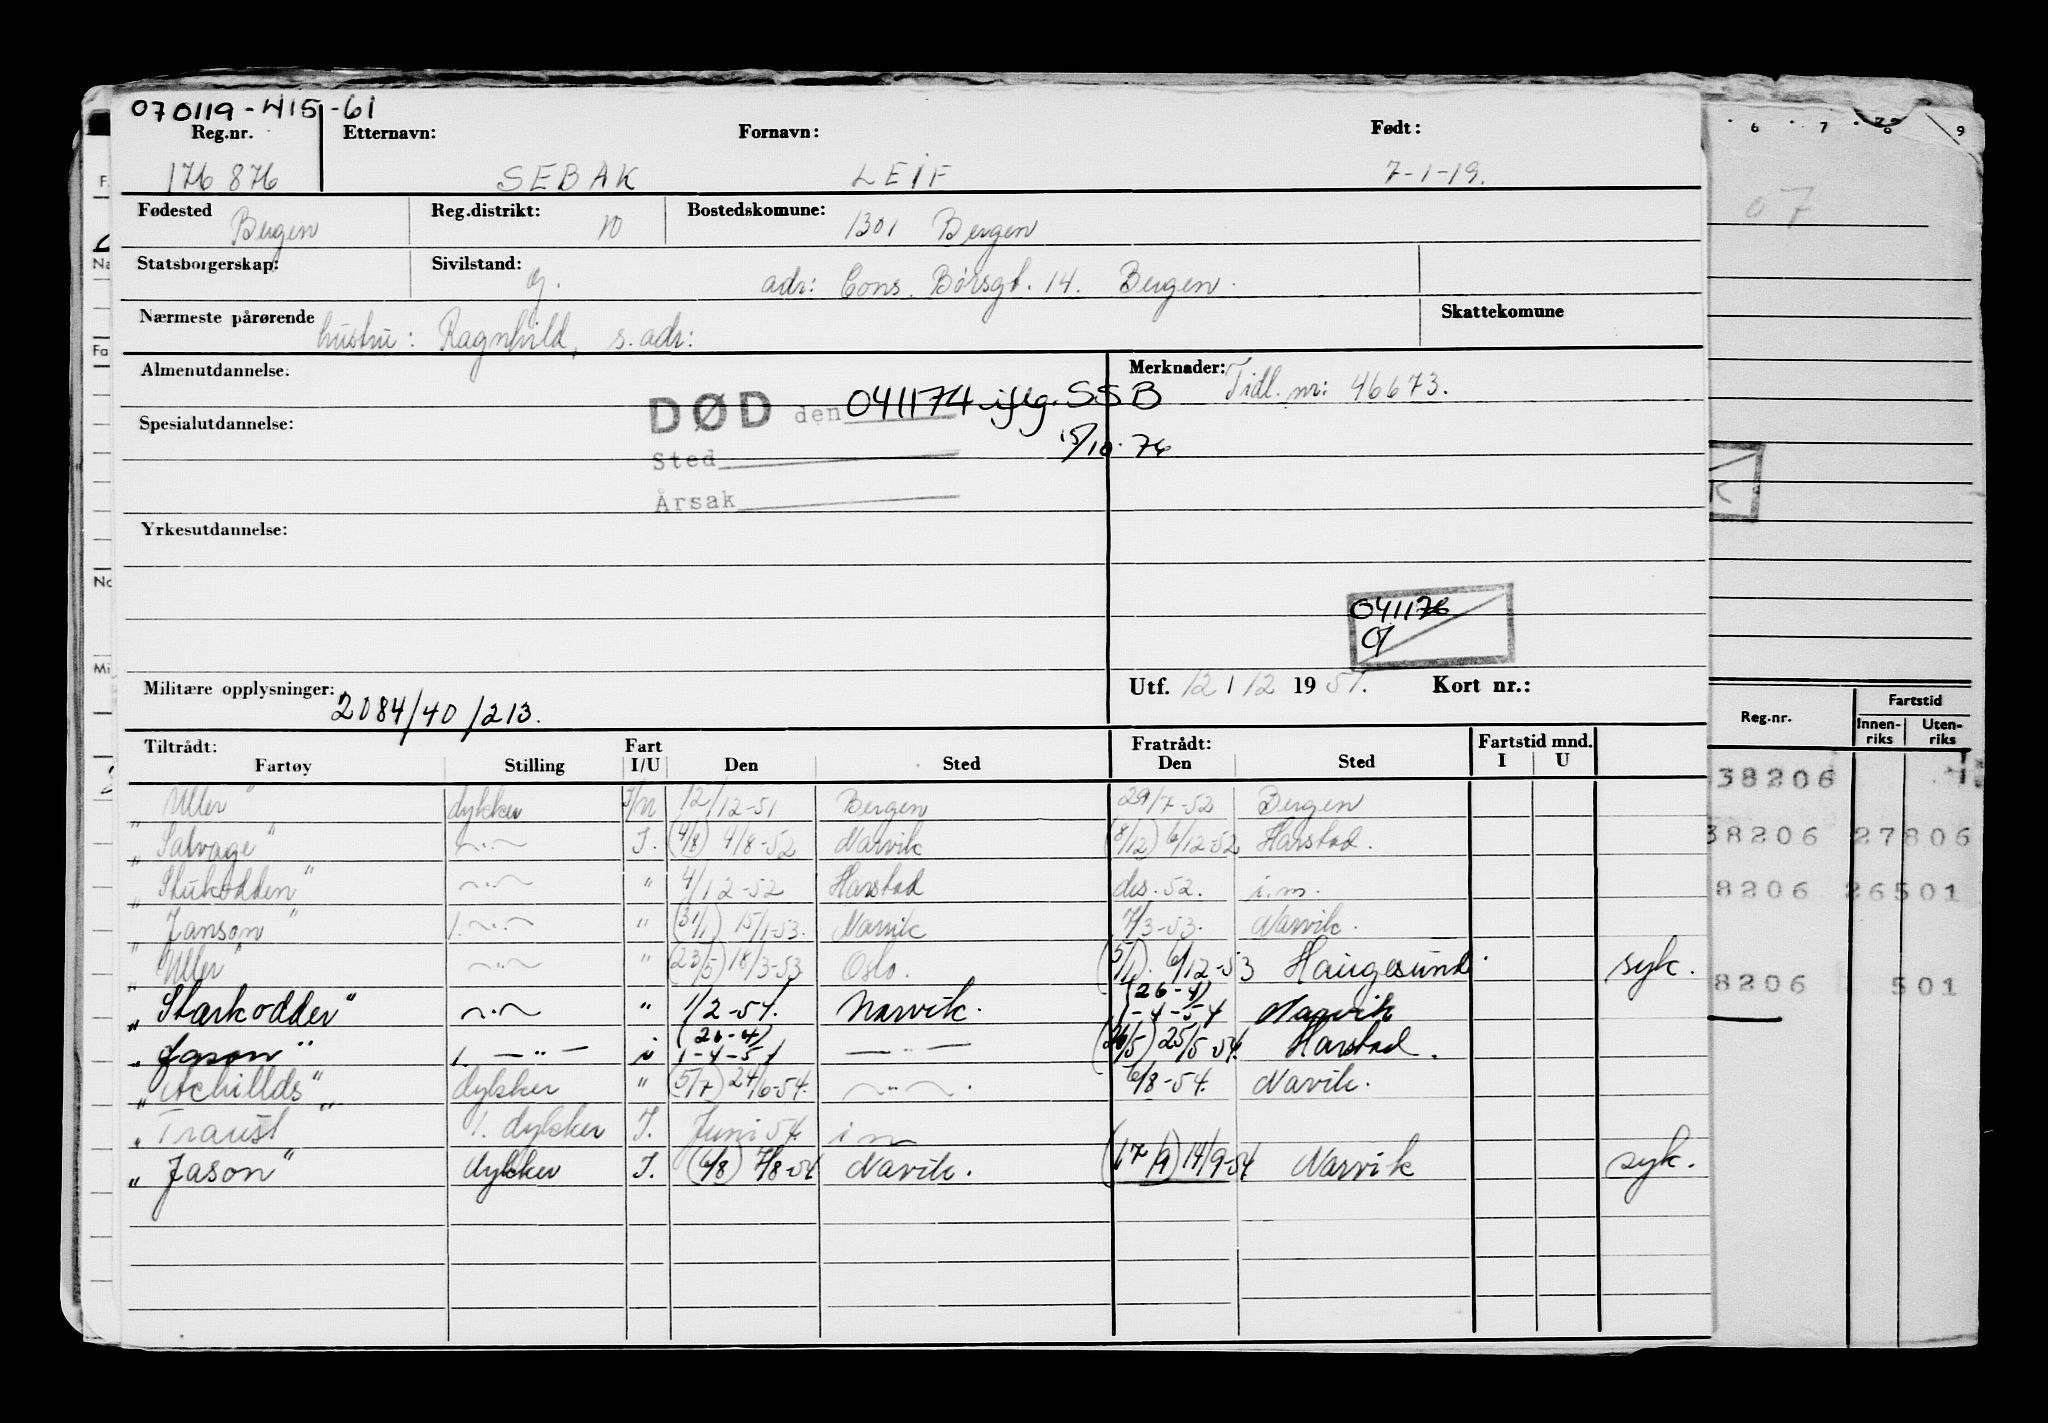 070119-415-61
Reg.nr. Etternavn: Fornavn: Født:
176 876 SEBAK LEIF 7-1-19.
Fødested Bergen Reg.distrikt: 10 Bostedskomune: 1301 Bergen
Statsborgerskap: Sivilstand: g. adr: Cons. Børsgt. 14. Bergen.
Nærmeste pårørende hustru: Ragnhild, s. adr: Skattekomune
Almenutdannelse: Merknader: Tidl. nr: 46673.
DØD den 041174 iflg. SSB
Spesialutdannelse: 15/10-76
Sted
Årsak
Yrkesutdannelse:
041176
Militære opplysninger: 2084/40/213. Utf. 12/12 1951. Kort nr.:
Tiltrådt: Fart Fratrådt: Fartstid mnd.
Fartøy Stilling I/U Den Sted Den Sted I U
"Uller" dykker I/U 12/12-51 Bergen 29/7-52 Bergen
"Salvage" -"- I. (4/8) 4/8-52 Narvik (8/12) 6/12-52 Harstad.
-"- " 4/12-52 Harstad des. 52. i.m.
"Janson" 1. -"- " (31/1) 15/1-53. Narvik 7/3-53. Narvik.
"Uller" -"- " (23/5) 18/3-53 Oslo. (5/1). 6/12-53 Haugesund. syk.
"Starkodder" -"- " 1/2-54. Narvik. (26-4) 1-4-54 Narvik
"Jason" 1. -"- i (26-4) 1-4-54 -"- (26/5) 25/5-54. Harstad.
"Achillds" dykker " (5/7) 24/6-54. -"-. 6/8-54. Navik.
"Traust" 1. dykker I. Juni 54. i m
"Jason" dykker I. (6/8) 7/8-54 Navik. (17/9) 14/9-54 Narvik syk.
6 7 8 9
07
Reg.nr. Fartstid
Innenriks Utenriks
38206
38206 27806
8206 26501
8206 501